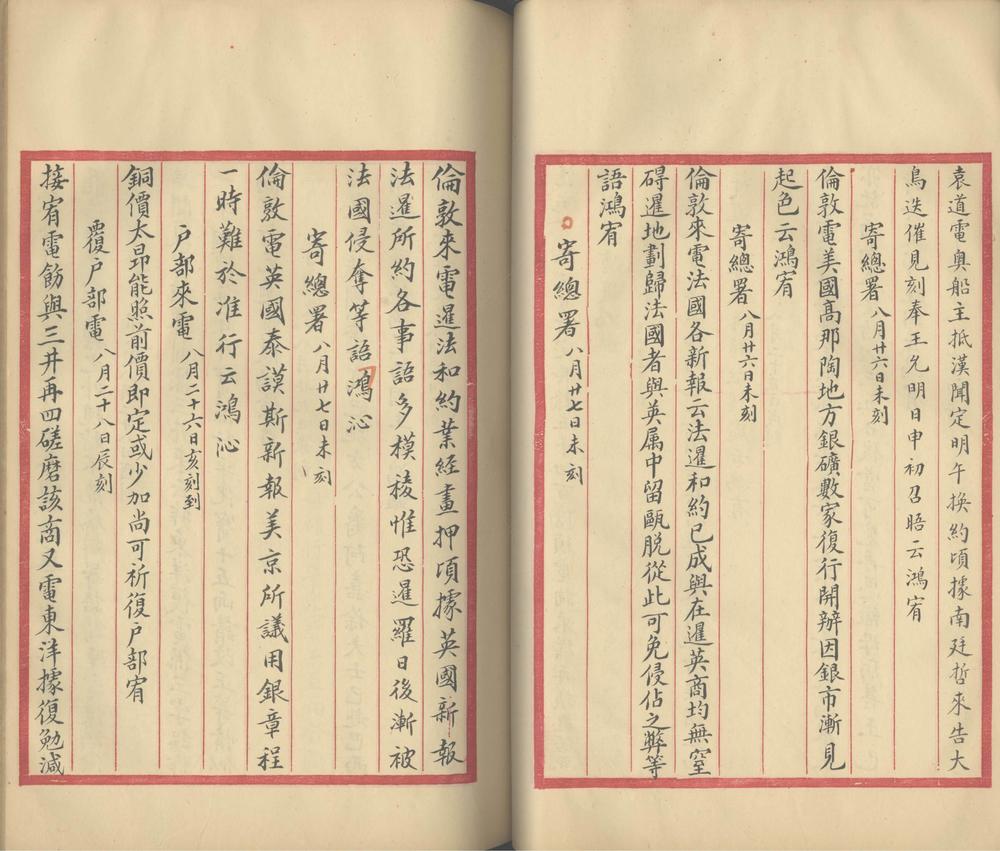 袁道電奥船主抵漢聞定明午換約頃據南廷哲來告大
鳥迭催見刻奉王允明日申初召晤云鴻宥
寄總署八月廿六日未刻
倫敦電美國高那陶地方銀礦數家復行開辦因銀市漸見
起色云鴻宥
寄總署八月廿六日未刻
倫敦來電法國各新報云法暹和約已成與在暹英商均無窒
碍暹地劃歸法國者與英属中留甌脱從此可免侵佔之弊等
語鴻宥
寄總署八月廿七日未刻
倫敦來電暹法和約業經畫押頃據英國新報
法暹所約各事語多模稜惟恐暹羅日後漸被
法國侵奪等語鴻沁
寄總署八月廿七日未刻
倫敦電英國泰謨斯新報美京所議用銀章程
一時難於准行云鴻沁
户部來電八月二十六日亥刻到
銅價太昂能照前價即定或少加尚可祈復户部宥
覆户部電八月二十八日辰刻
接宥電飭與三井再四磋磨該商又電東洋據復勉減